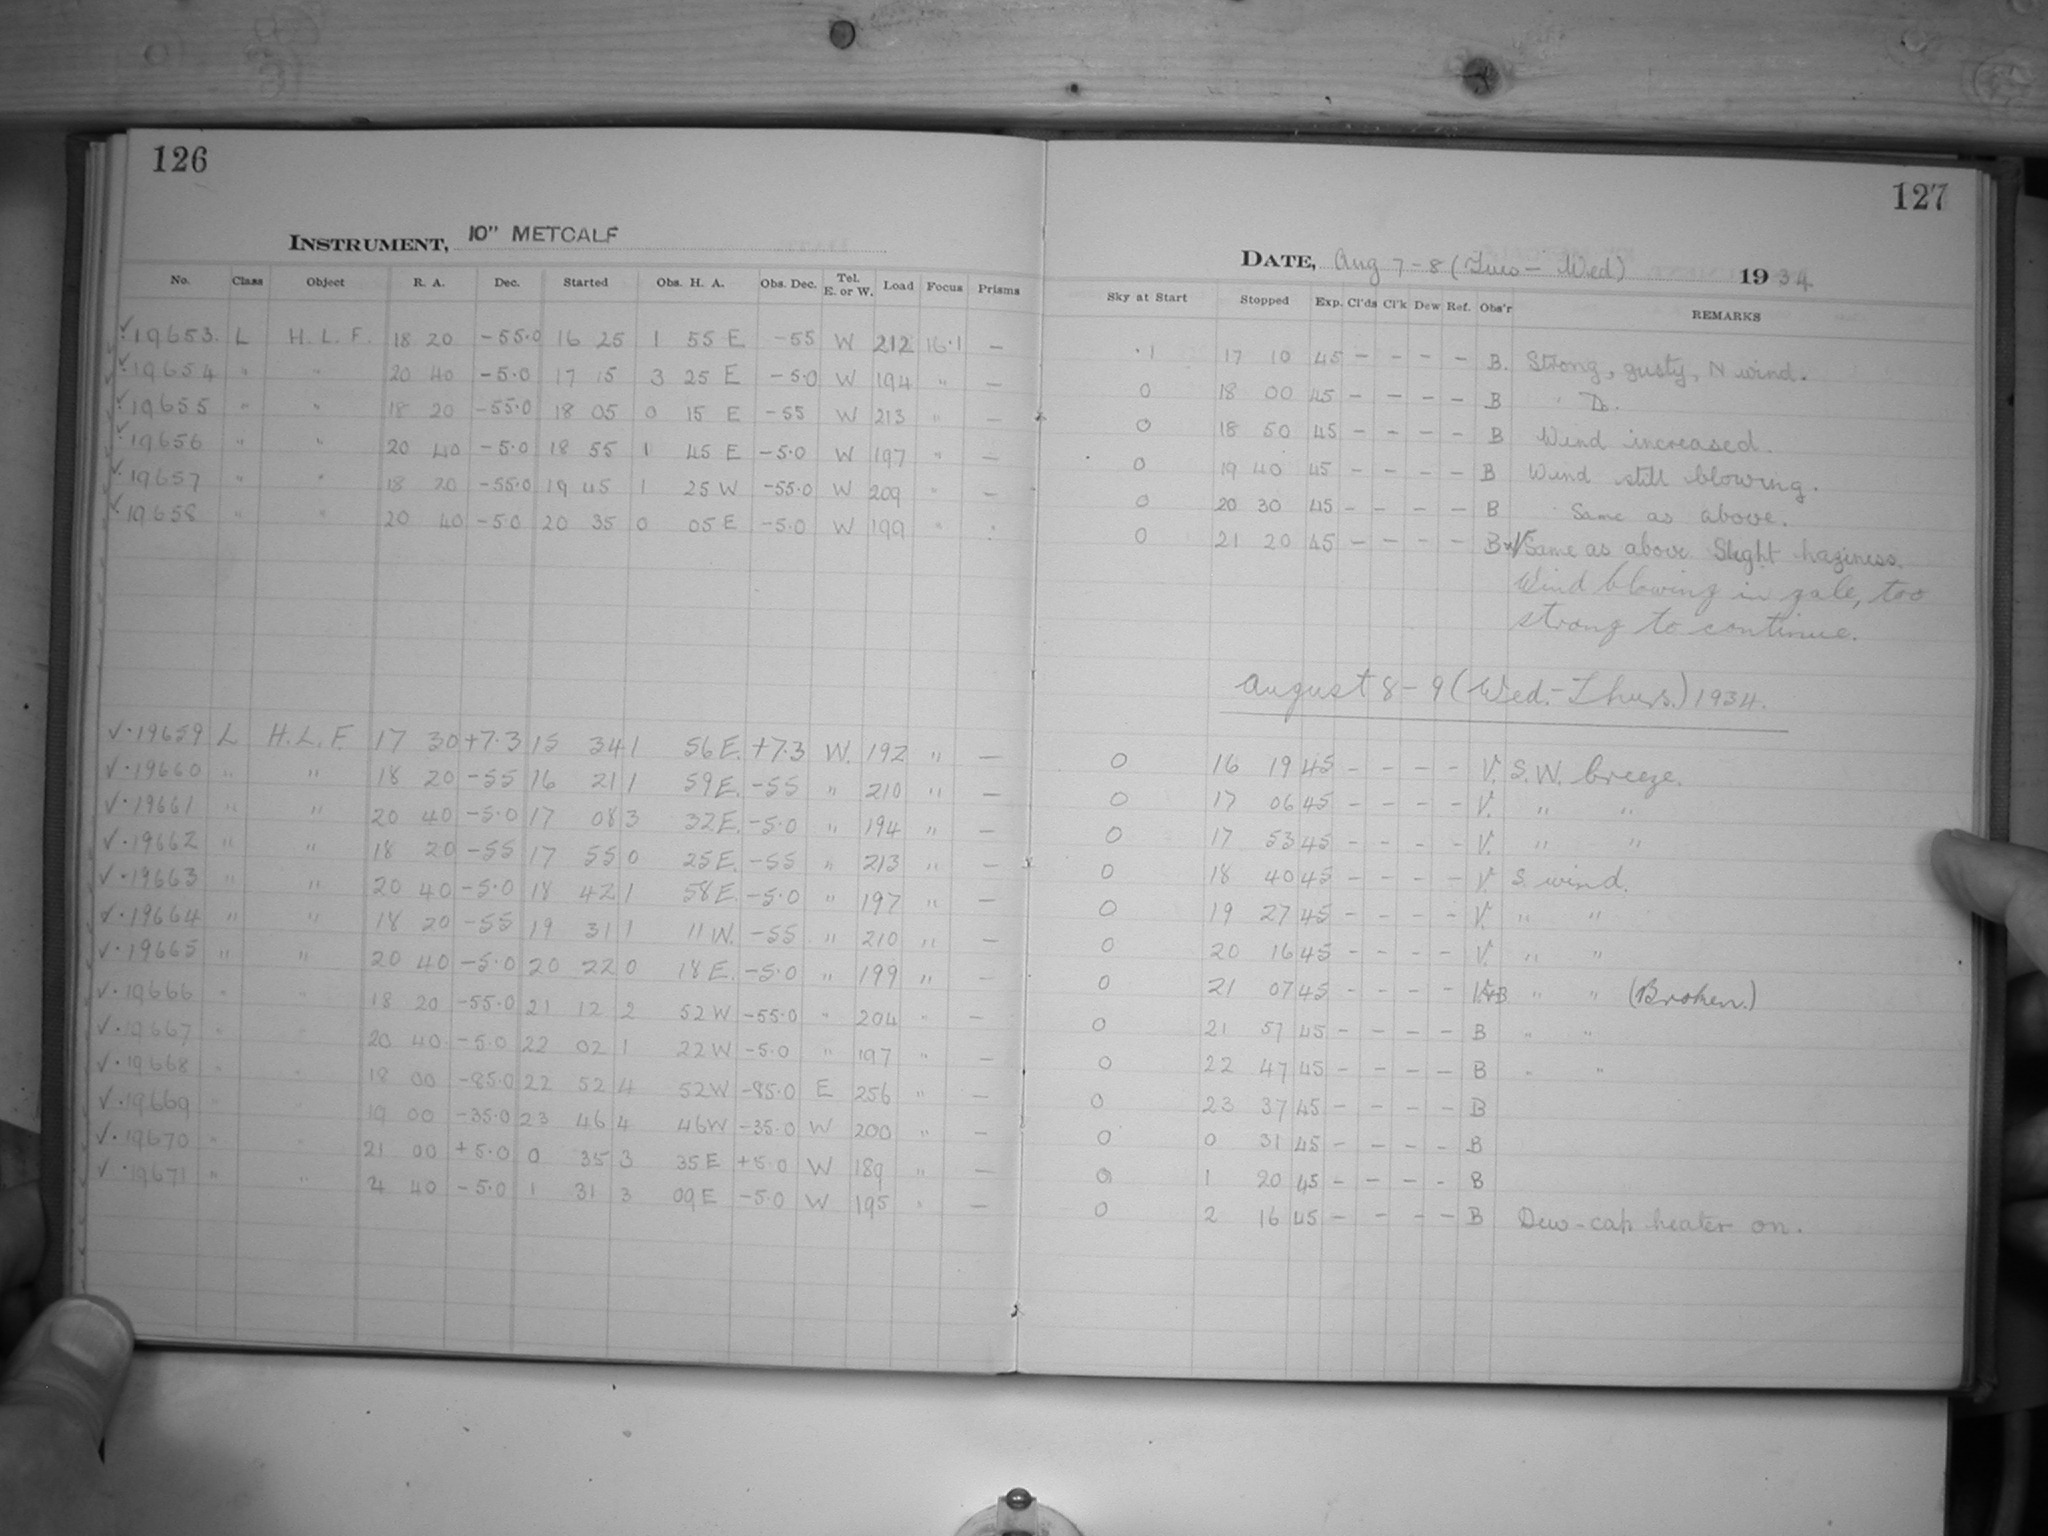 126
INSTRUMENT, 10" METCALF
No. Class Object R. A. Dec. Started Obs. H. A. Obs. Dec. Tel. E. or W. Load Focus Prisms
✓19653. L H. L. F. 18 20 -55.0 16 25 1 55 E -55 W 212 16.1 —
✓19654 " " 20 40 -5.0 17 15 3 25 E -5.0 W 194 " —
✓19655 " " 18 20 -55.0 18 05 0 15 E -55 W 213 " —
✓19656 " " 20 40 -5.0 18 55 1 45 E -5.0 W 197 " —
✓19657 " " 18 20 -55.0 19 45 1 25 W -55.0 W 209 " —
✓19658 " " 20 40 -5.0 20 35 0 05 E -5.0 W 199 " "
✓·19659 L H.L.F. 17 30 +7.3 15 34 1 56 E. +7.3 W. 192 " —
✓·19660 " " 18 20 -55 16 21 1 59 E. -55 " 210 " —
✓·19661 " " 20 40 -5.0 17 08 3 32 E. -5.0 " 194 " —
✓·19662 " " 18 20 -55 17 55 0 25 E. -55 " 213 " —
✓·19663 " " 20 40 -5.0 18 42 1 58 E. -5.0 " 197 " —
✓·19664 " " 18 20 -55 19 31 1 11 W. -55 " 210 " —
✓·19665 " " 20 40 -5.0 20 22 0 18 E. -5.0 " 199 " —
✓·19666 " " 18 20 -55.0 21 12 2 52 W -55.0 " 204 " —
✓·19667 " " 20 40 -5.0 22 02 1 22 W -5.0 " 197 " —
✓·19668 " " 18 00 -85.0 22 52 4 52 W -85.0 E 256 " —
✓·19669 " " 19 00 -35.0 23 46 4 46 W -35.0 W 200 " —
✓·19670 " " 21 00 +5.0 0 35 3 35 E +5.0 W 189 " —
✓·19671 " " 40 -5.0 1 31 3 09 E -5.0 W 195 " —
127
DATE, Aug 7-8 (Tues - Wed) 1934
Sky at Start Stopped Exp. Cl'ds Cl'k Dew Ref. Obs'r REMARKS
.1 17 10 45 — — — — B. Strong, gusty, N wind.
0 18 00 45 — — — — B " Do.
0 18 50 45 — — — — B Wind increased.
0 19 40 45 — — — — B Wind still blowing.
0 20 30 45 — — — — B Same as above.
0 21 20 45 — — — — B+V Same as above. Slight haziness.
Wind blowing in gale, too
strong to continue.
August 8-9 (Wed.-Thurs.) 1934.
0 16 19 45 — — — — V. S. W. breeze.
0 17 06 45 — — — — V. " "
0 17 53 45 — — — — V. " "
0 18 40 45 — — — — V. S. wind.
0 19 27 45 — — — — V. " "
0 20 16 45 — — — — V. " "
0 21 07 45 — — — — V.+B " " (Broken.)
0 21 57 45 — — — — B " "
0 22 47 45 — — — — B " "
0 23 37 45 — — — — B
0 0 31 45 — — — — B
0 1 20 45 — — — — B
0 2 16 45 — — — — B Dew-cap heater on.